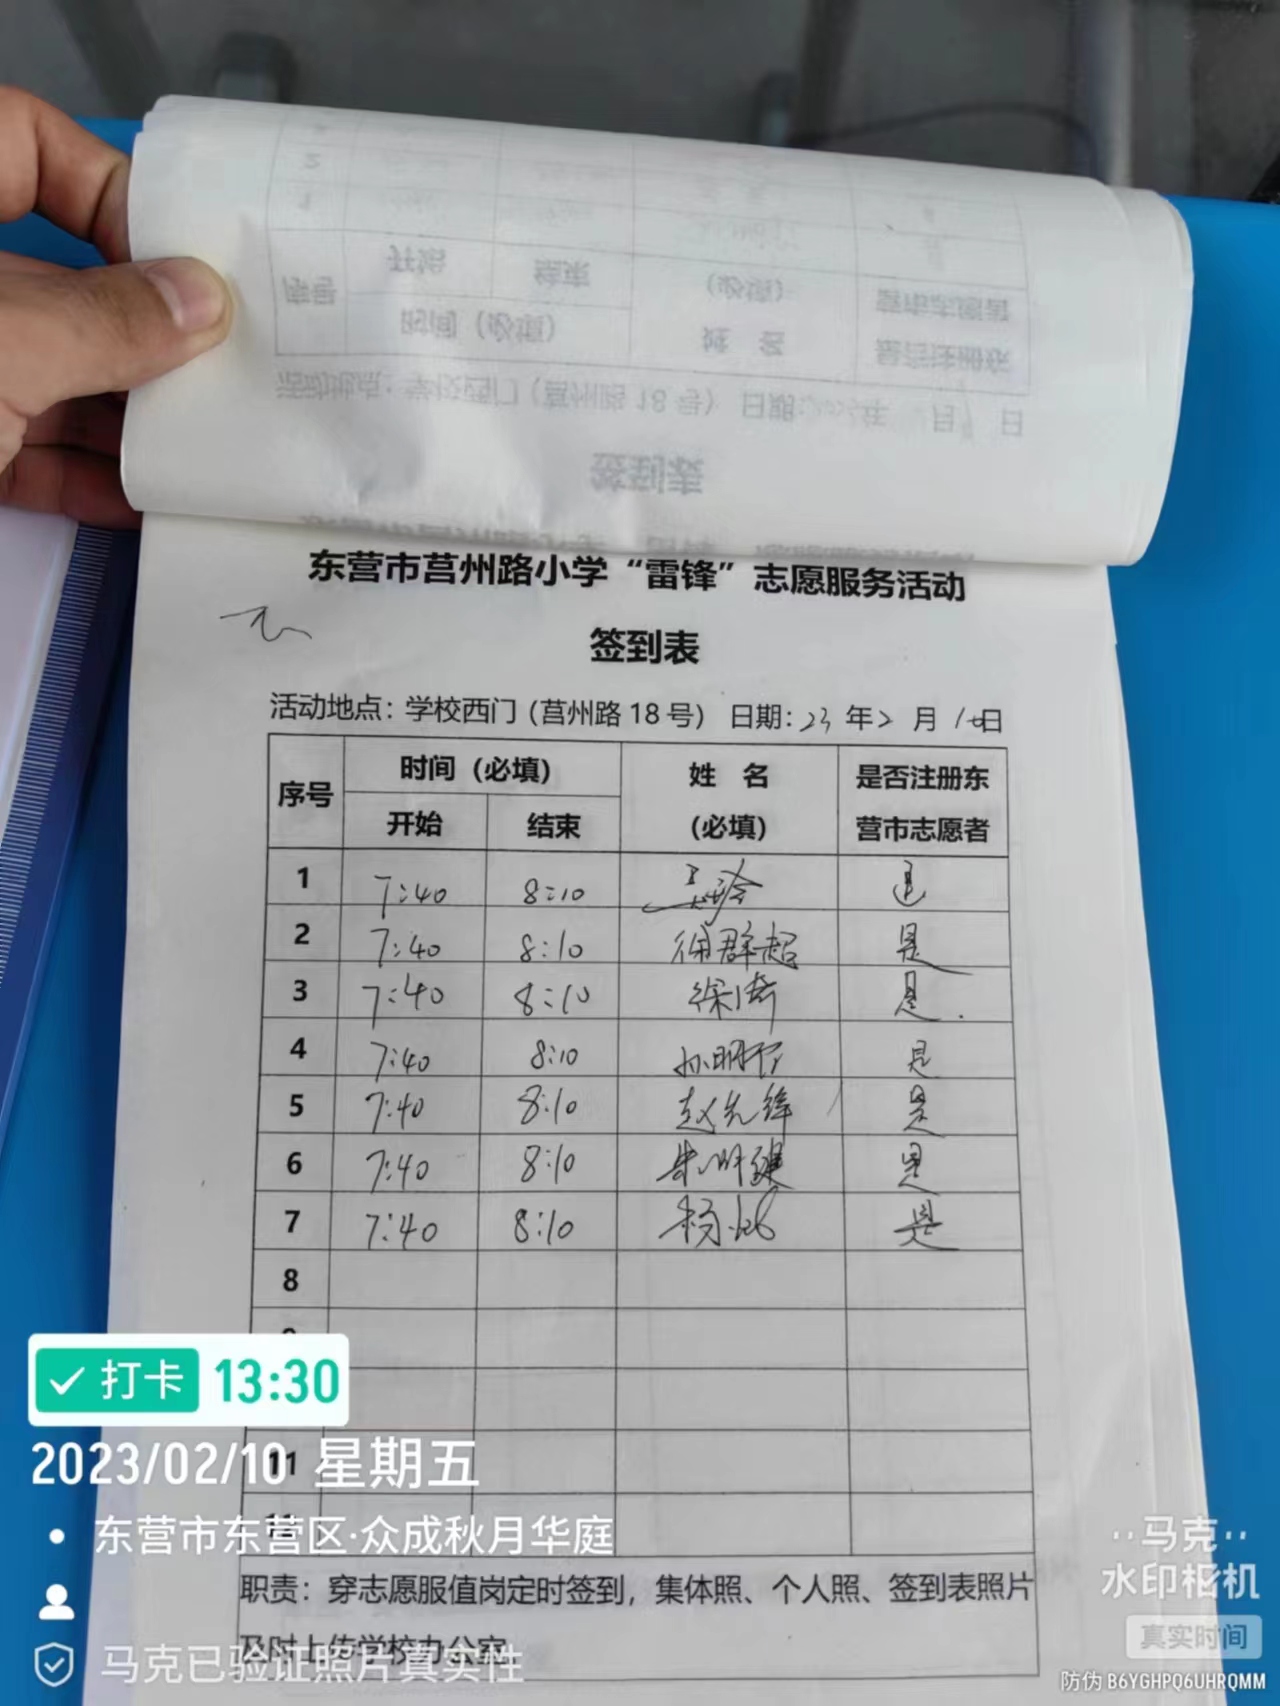 东营市莒州路小学“雷锋”志愿服务活动
签到表
活动地点：学校西门（莒州路18号） 日期：23年2月10日
序号 时间（必填） 姓 名（必填） 是否注册东营市志愿者
开始 结束
1 7:40 8:10 是
2 7:40 8:10 徐群超 是
3 7:40 8:10 徐 是.
4 7:40 8:10 孙明 是
5 7:40 8:10 赵先锋 是
6 7:40 8:10 朱明健 是
7 7:40 8:10 杨 是
8
11
职责：穿志愿服值岗定时签到，集体照、个人照、签到表照片
及时上传学校办公室
打卡 13:30
2023/02/10 星期五
东营市东营区·众成秋月华庭
马克已验证照片真实性
马克
水印相机
真实时间
防伪 B6YGHPQ6UHRQMM